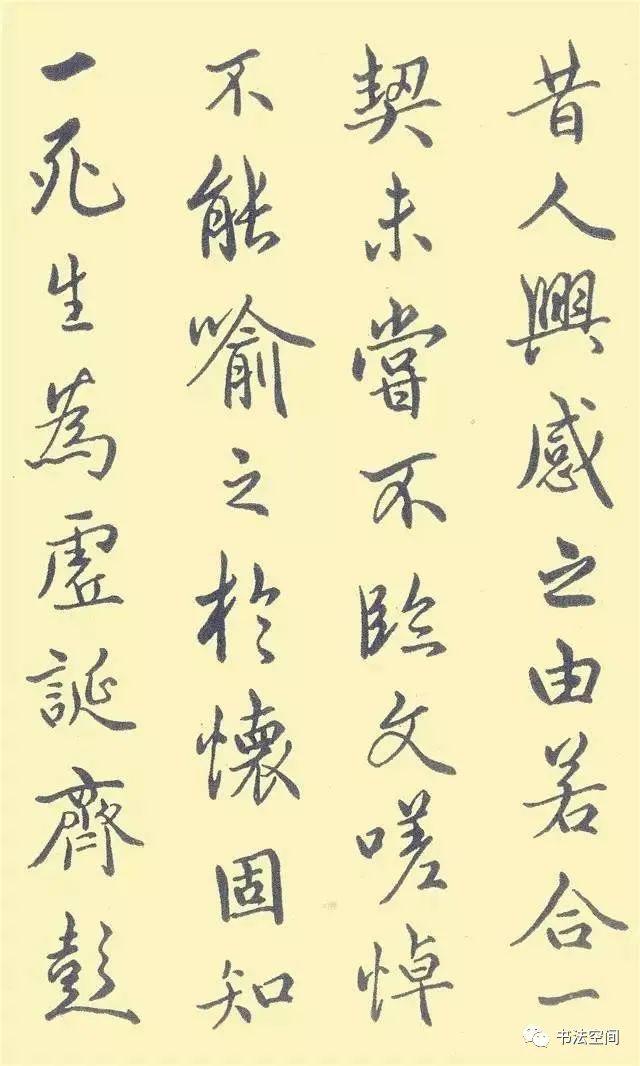 昔人興感之由若合一
契未嘗不臨文嗟悼
不能喻之於懷固知
一死生為虛誕齊彭
书法空间